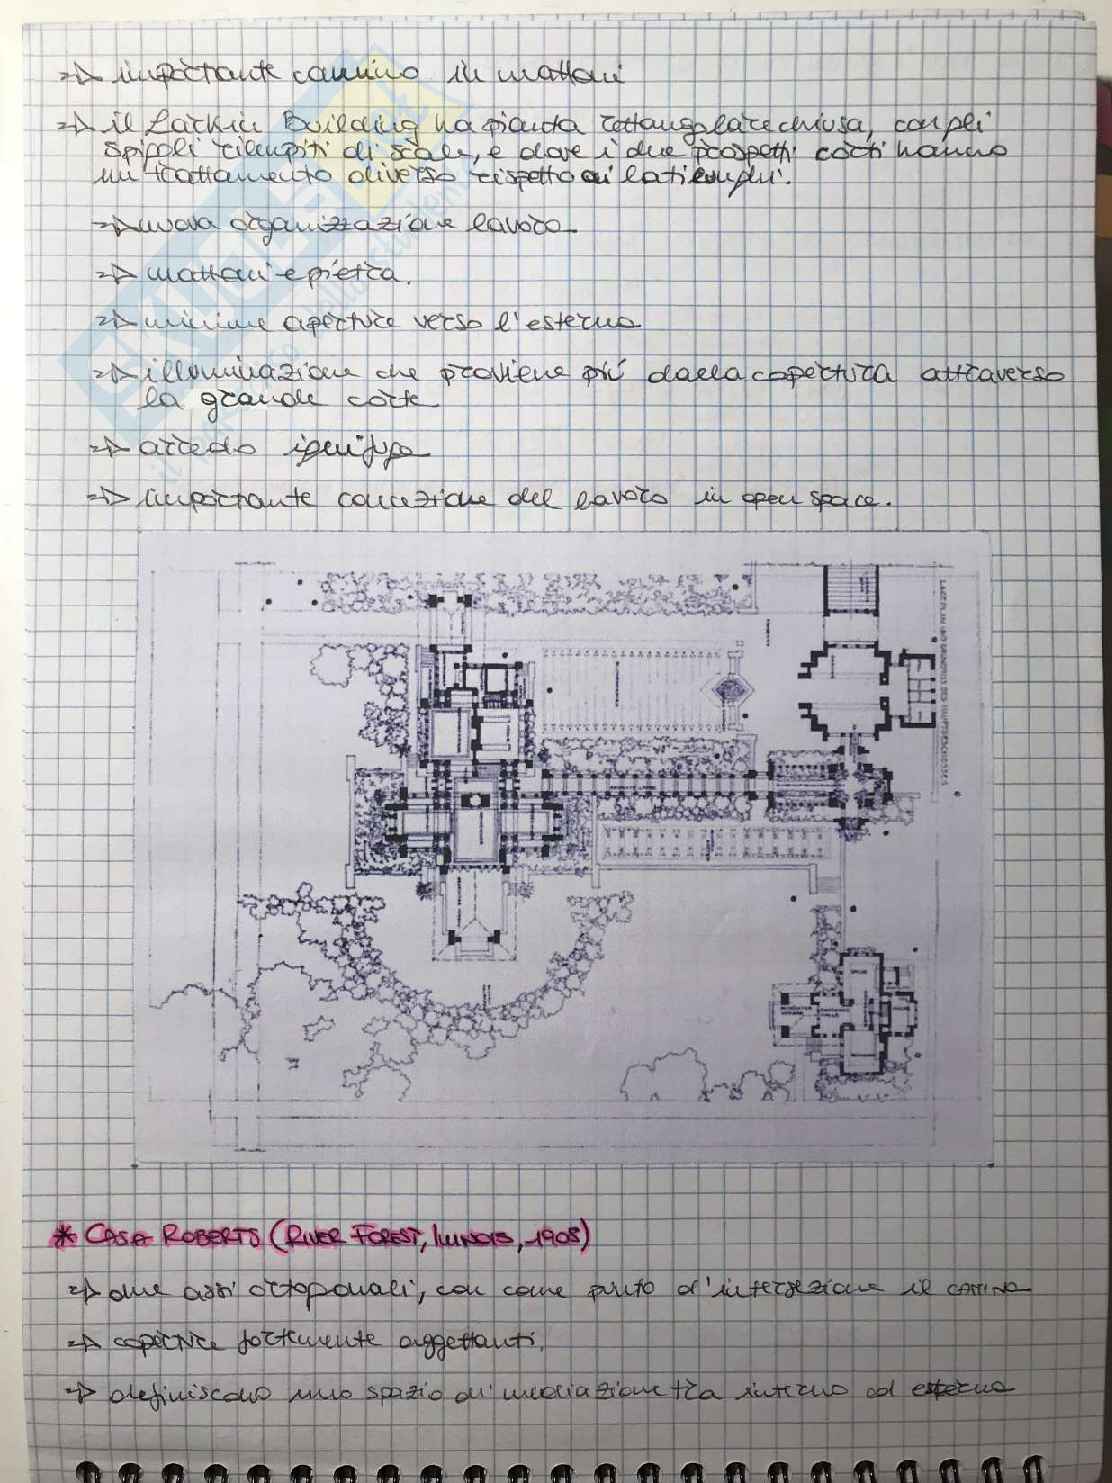 => importante camino in mattoni
=> il Larkin Building ha pianta rettangolare chiusa, con gli
spigoli riempiti di scale, e dove i due prospetti corti hanno
un trattamento diverso rispetto ai lati lunghi.
=> nuova organizzazione lavoro
=> mattoni e pietra.
=> minime aperture verso l'esterno
=> illuminazione che proviene più dalla copertura attraverso
la grande corte
=> arredo ignifugo
=> importante concezione del lavoro in open space.
* CASA ROBERTS (RIVER FOREST, ILLINOIS, 1908)
=> due assi ortogonali, con come punto d'intersezione il camino
=> coperture fortemente aggettanti.
=> definiscono uno spazio di mediazione tra interno ed esterno